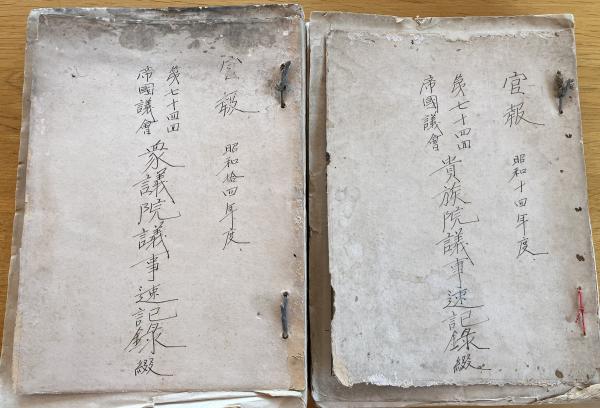 官報
昭和拾四年度
第七十四回
帝國議會
衆議院議事速記錄綴
官報
昭和十四年度
第七十四回
帝國議會
貴族院議事速記錄綴